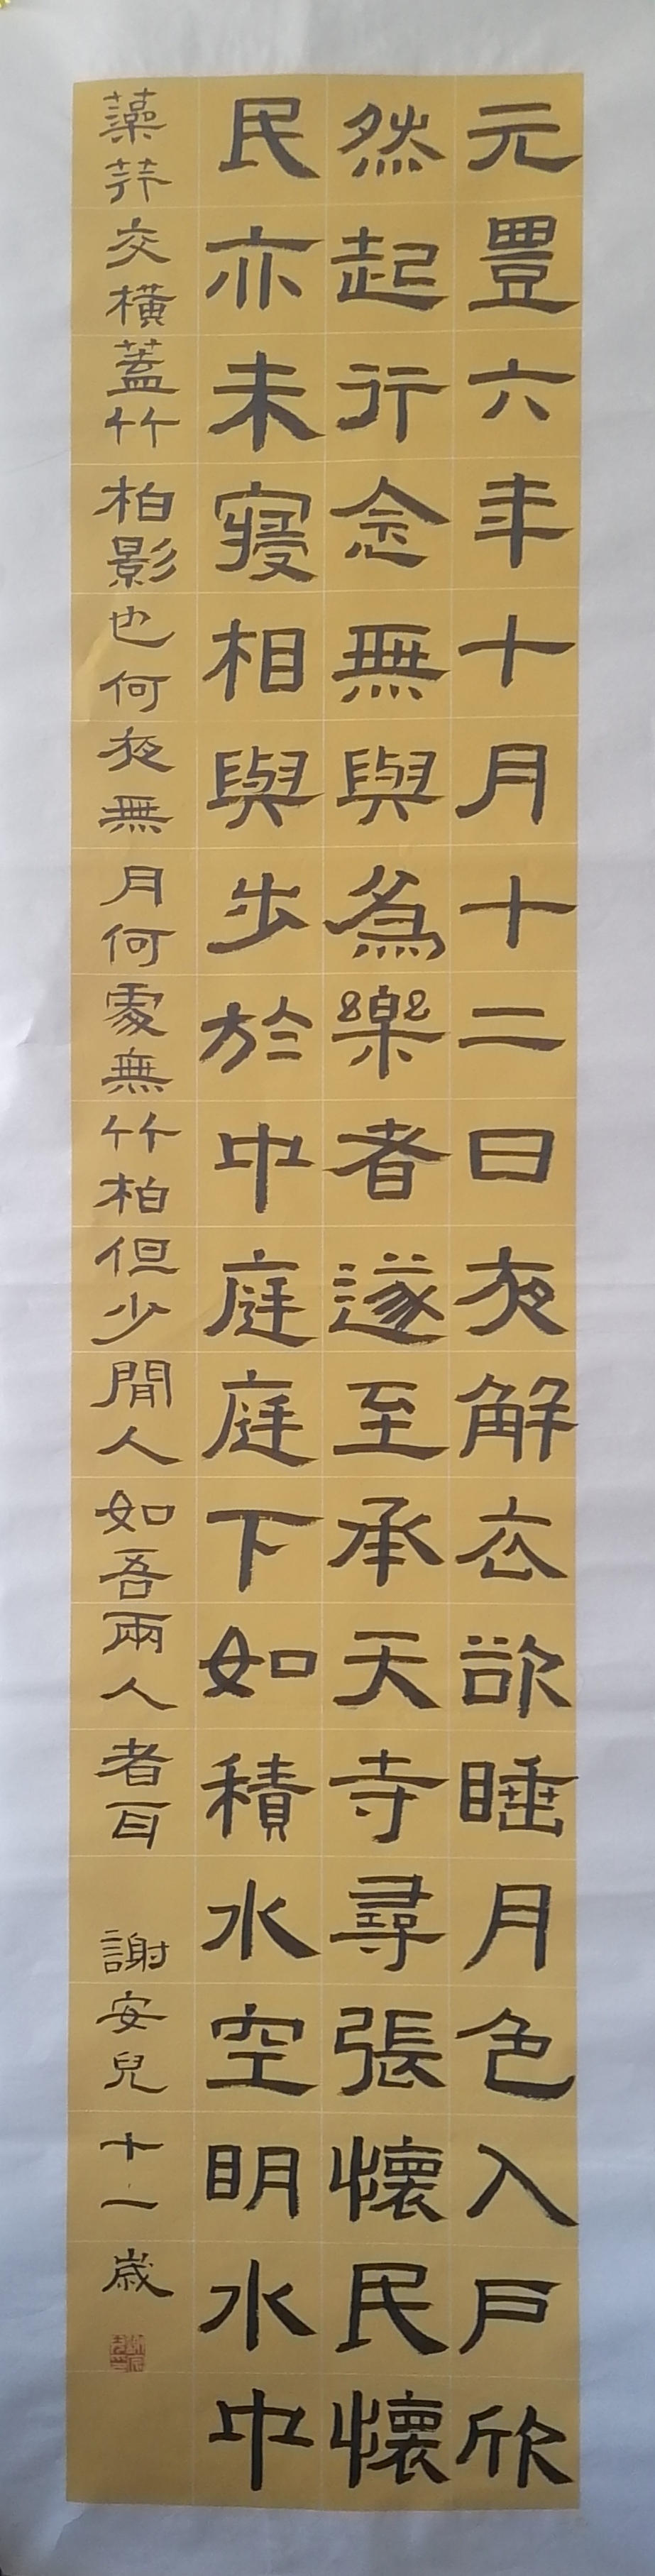 元豐六年十月十二日夜解衣欲睡月色入戶欣
然起行念無與為樂者遂至承天寺尋張懷民懷
民亦未寢相與步於中庭庭下如積水空明水中
藻荇交橫蓋竹柏影也何夜無月何處無竹柏但少閒人如吾兩人者耳
謝安兒十一歲